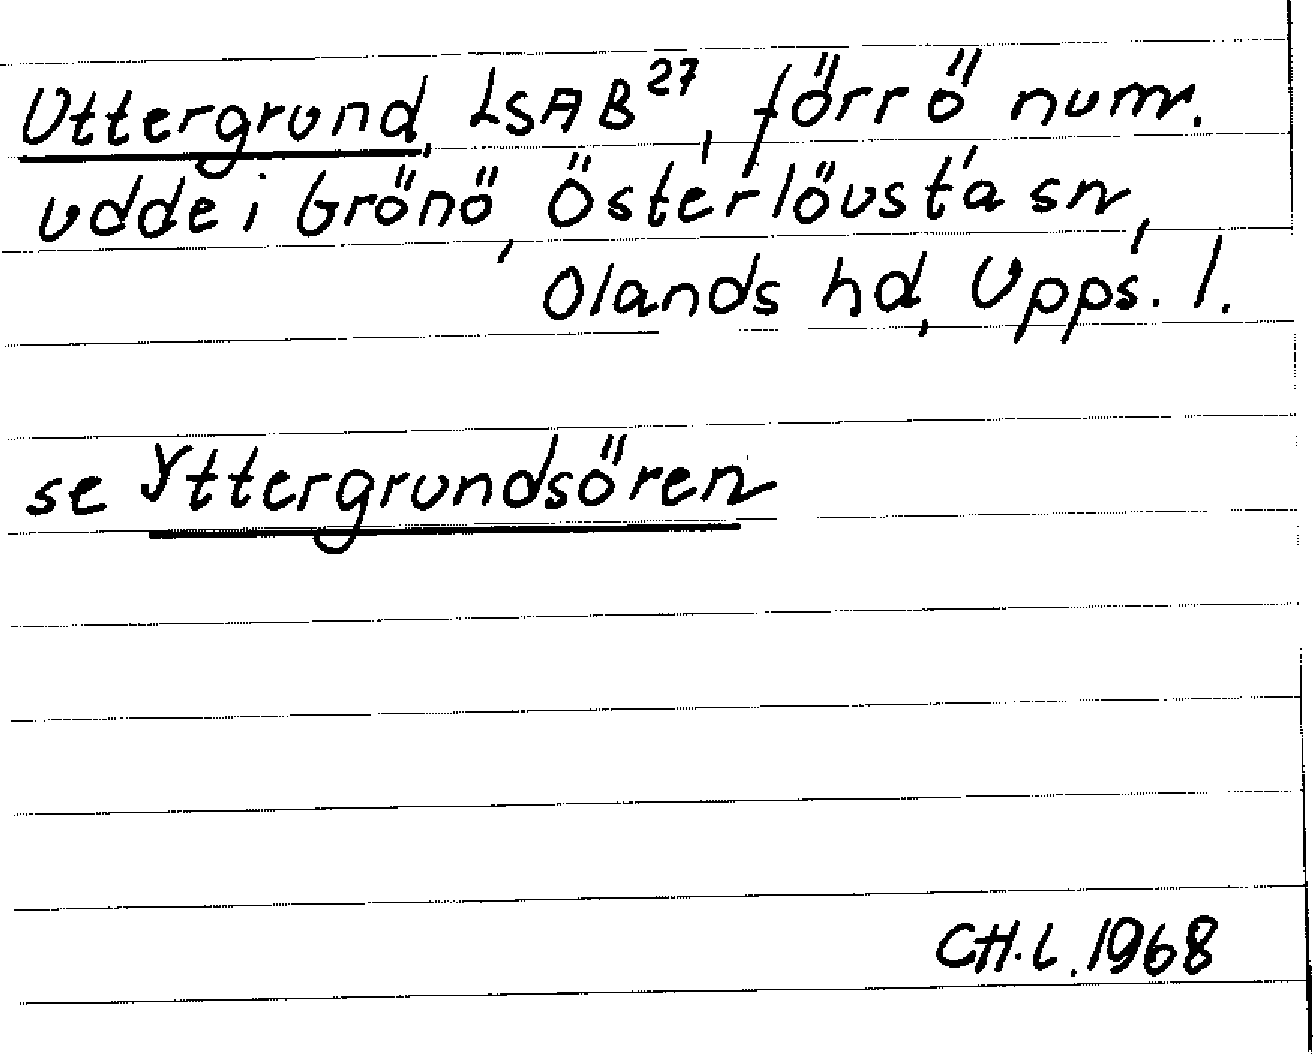 Uttergrund, LSA B27, förr ö num.
udde i Grönö, Österlövsta sn,
Olands hd, Upps. l.
se Yttergrundsören
CH.L. 1968